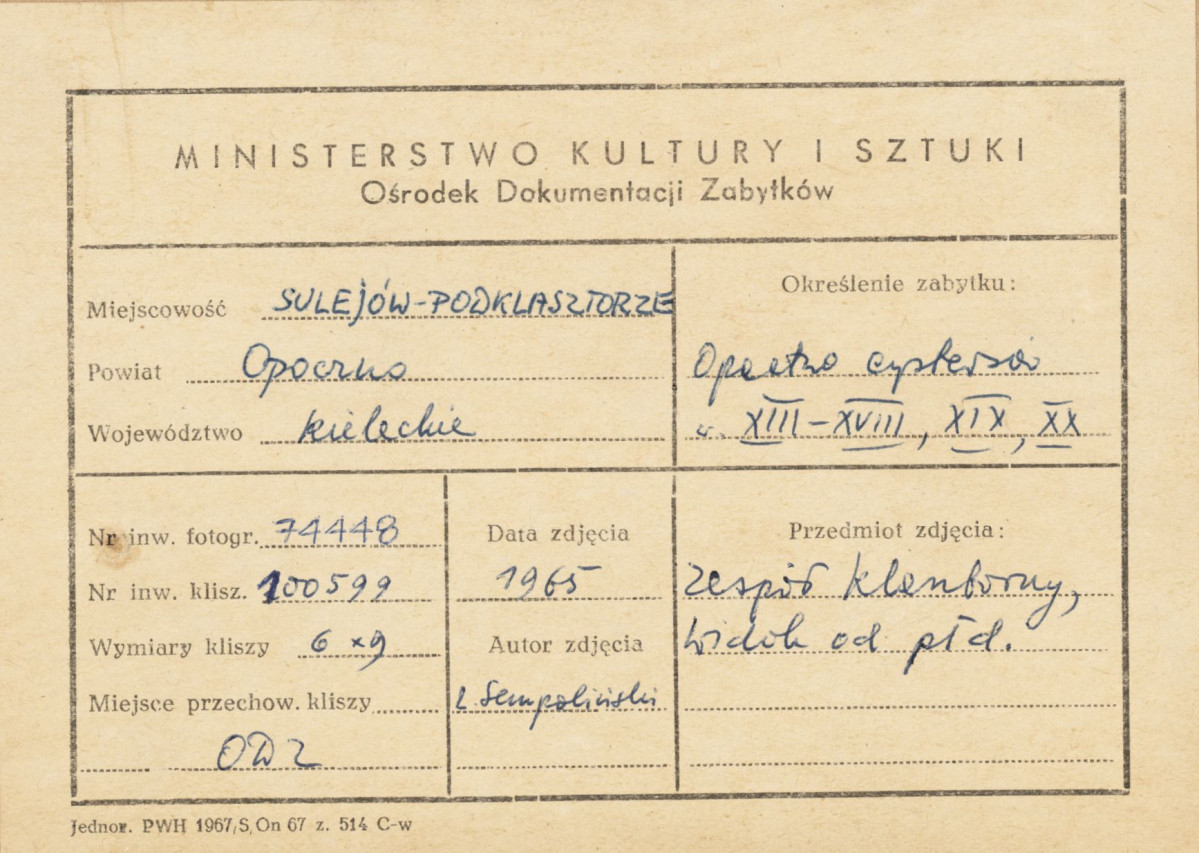 MINISTERSTWO KULTURY I SZTUKI
Ośrodek Dokumentacji Zabytków
Miejscowość SULEJÓW-PODKLASZTORZE
Powiat Opoczno
Województwo kieleckie
Określenie zabytku:
Opactwo cystersów
w. XIII-XVIII, XIX, XX
Nr inw. fotogr. 74448
Nr inw. klisz. 100599
Wymiary kliszy 6 x 9
Miejsce przechow. kliszy
ODZ
Data zdjęcia
1965
Autor zdjęcia
Ł Sempoliński
Przedmiot zdjęcia:
zespół klasztorny,
widok od płd.
Jednor. PWH 1967/S, On 67 z. 514 C-w